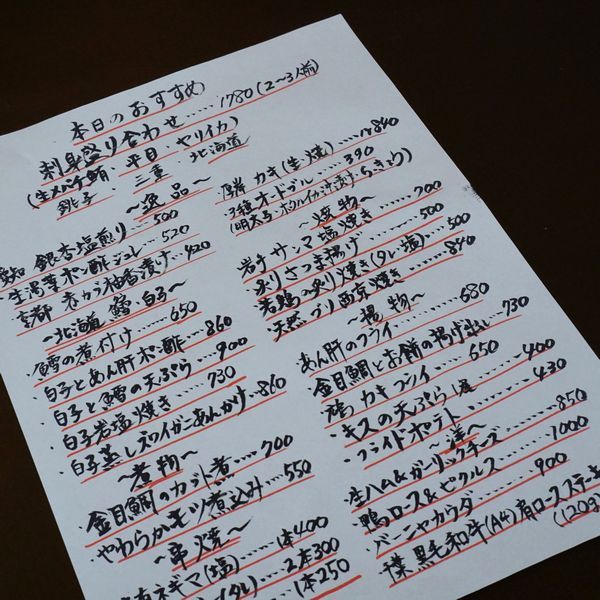 本日のおすすめ
刺身盛り合わせ・・・・・1780(2〜3人前)
(生メバチ鮪・平目・ヤリイカ)
銚子 三重 北海道
〜逸品〜
銀杏塩煎り・・・・・500
生湯葉ポン酢ジュレ・・・520
京都 赤かぶ柚香漬け・・・420
〜北海道 鱈・白子〜
・鱈の煮付け・・・・・650
・白子とあん肝ポン酢・・・860
・白子と鱈の天ぷら・・・・900
・白子岩塩焼き・・・・・730
・白子蒸しズワイガニあんかけ・・860
〜煮物〜
・金目鯛のカブト煮・・・・700
・やわらか牛モツ煮込み・・・550
〜串焼〜
ネギマ(塩)・・・・1本400
(タレ)・・・・2本300
1本250
カキ(生・焼)・・・・・840
・3種オードブル・・・・390
(明太子・ホタルイカ沖漬け・らっきょう)
〜焼物〜
岩手サンマ塩焼き・・・・・700
炙りさつま揚げ・・・・・500
若鶏の炙り焼き(タレ・塩)・・・500
天然ブリ西京焼き・・・・840
〜揚物〜
あん肝のフライ・・・・・680
金目鯛とお餅の揚げ出し・・・730
カキフライ・・・・・650
・キスの天ぷら・・・・・400
・フライドポテト・・・・・430
〜洋〜
・生ハム&ガーリックチーズ・・・・850
・鴨ロース&ピクルス・・・・・1000
・バーニャカウダ・・・・・900
千葉 黒毛和牛(A4)肩ロースステーキ
(120g)